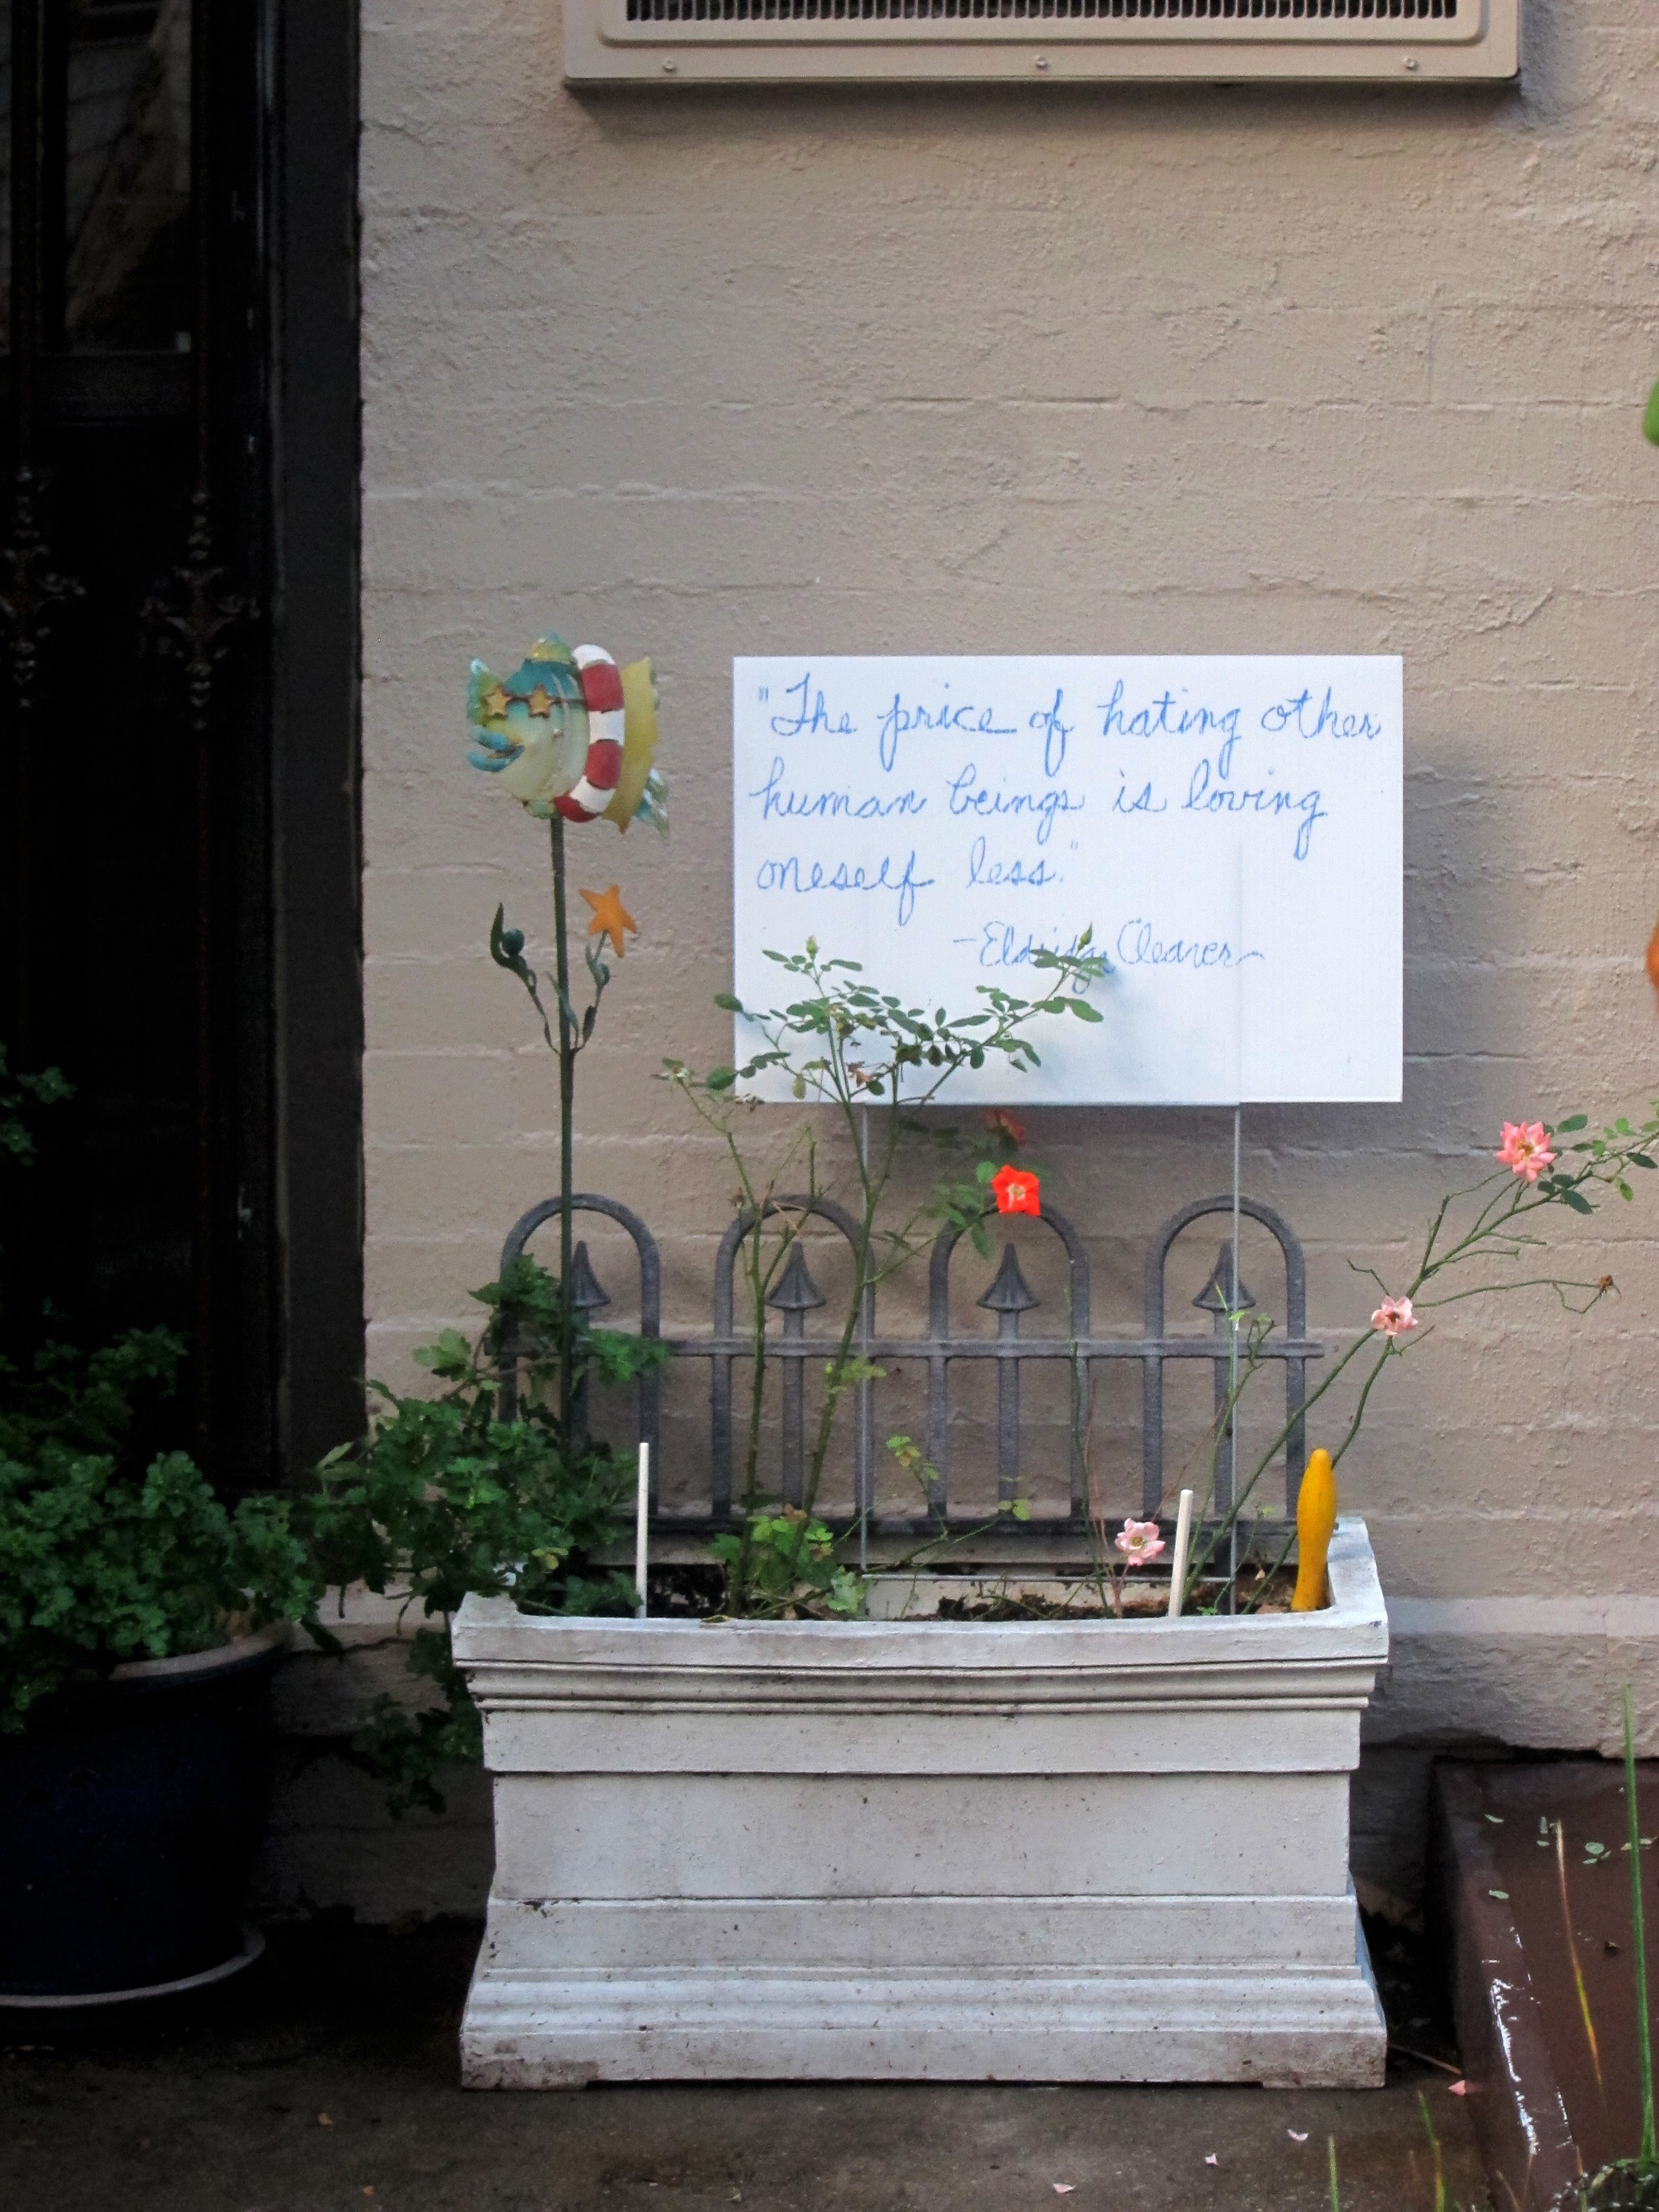 "The price of hating other
human beings is loving
oneself less."
-Eldridge Cleaver